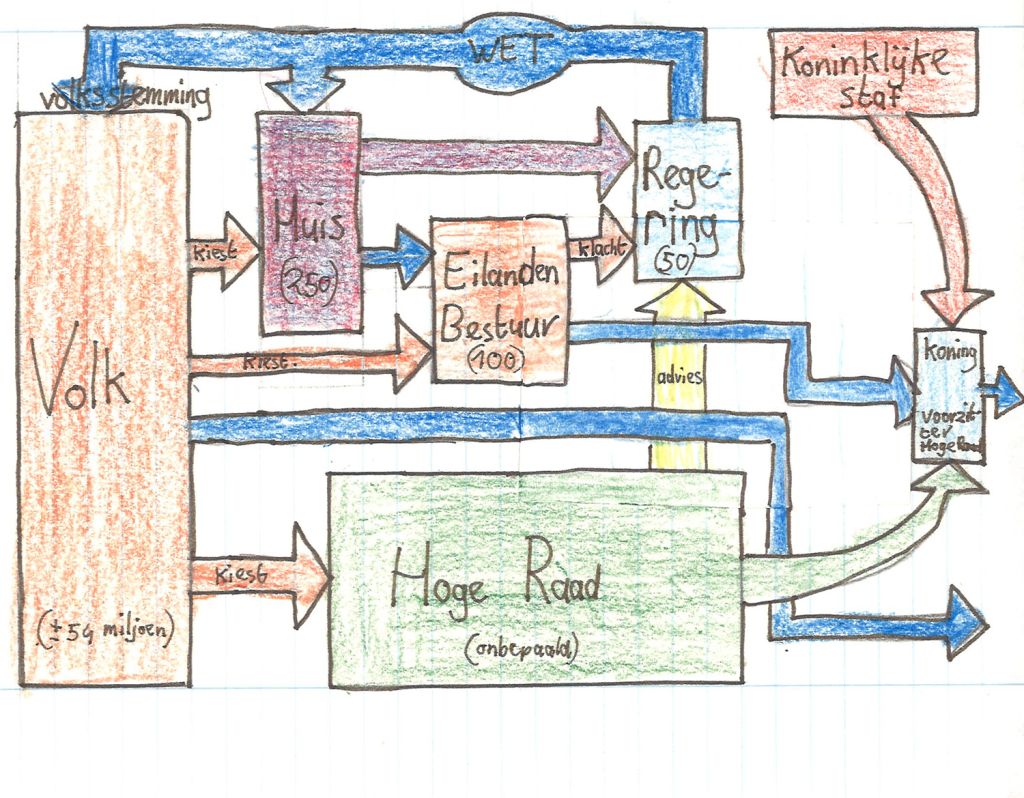 WET
Koninklijke
staf
volksstemming
Huis
(250)
Rege-
ring
(50)
kiest
klacht
Eilanden
Bestuur
(100)
Koning
voorzit-
ter
Hoge Raad
kiest:
advies
Volk
(± 54 miljoen)
kiest
Hoge Raad
(onbepaald)